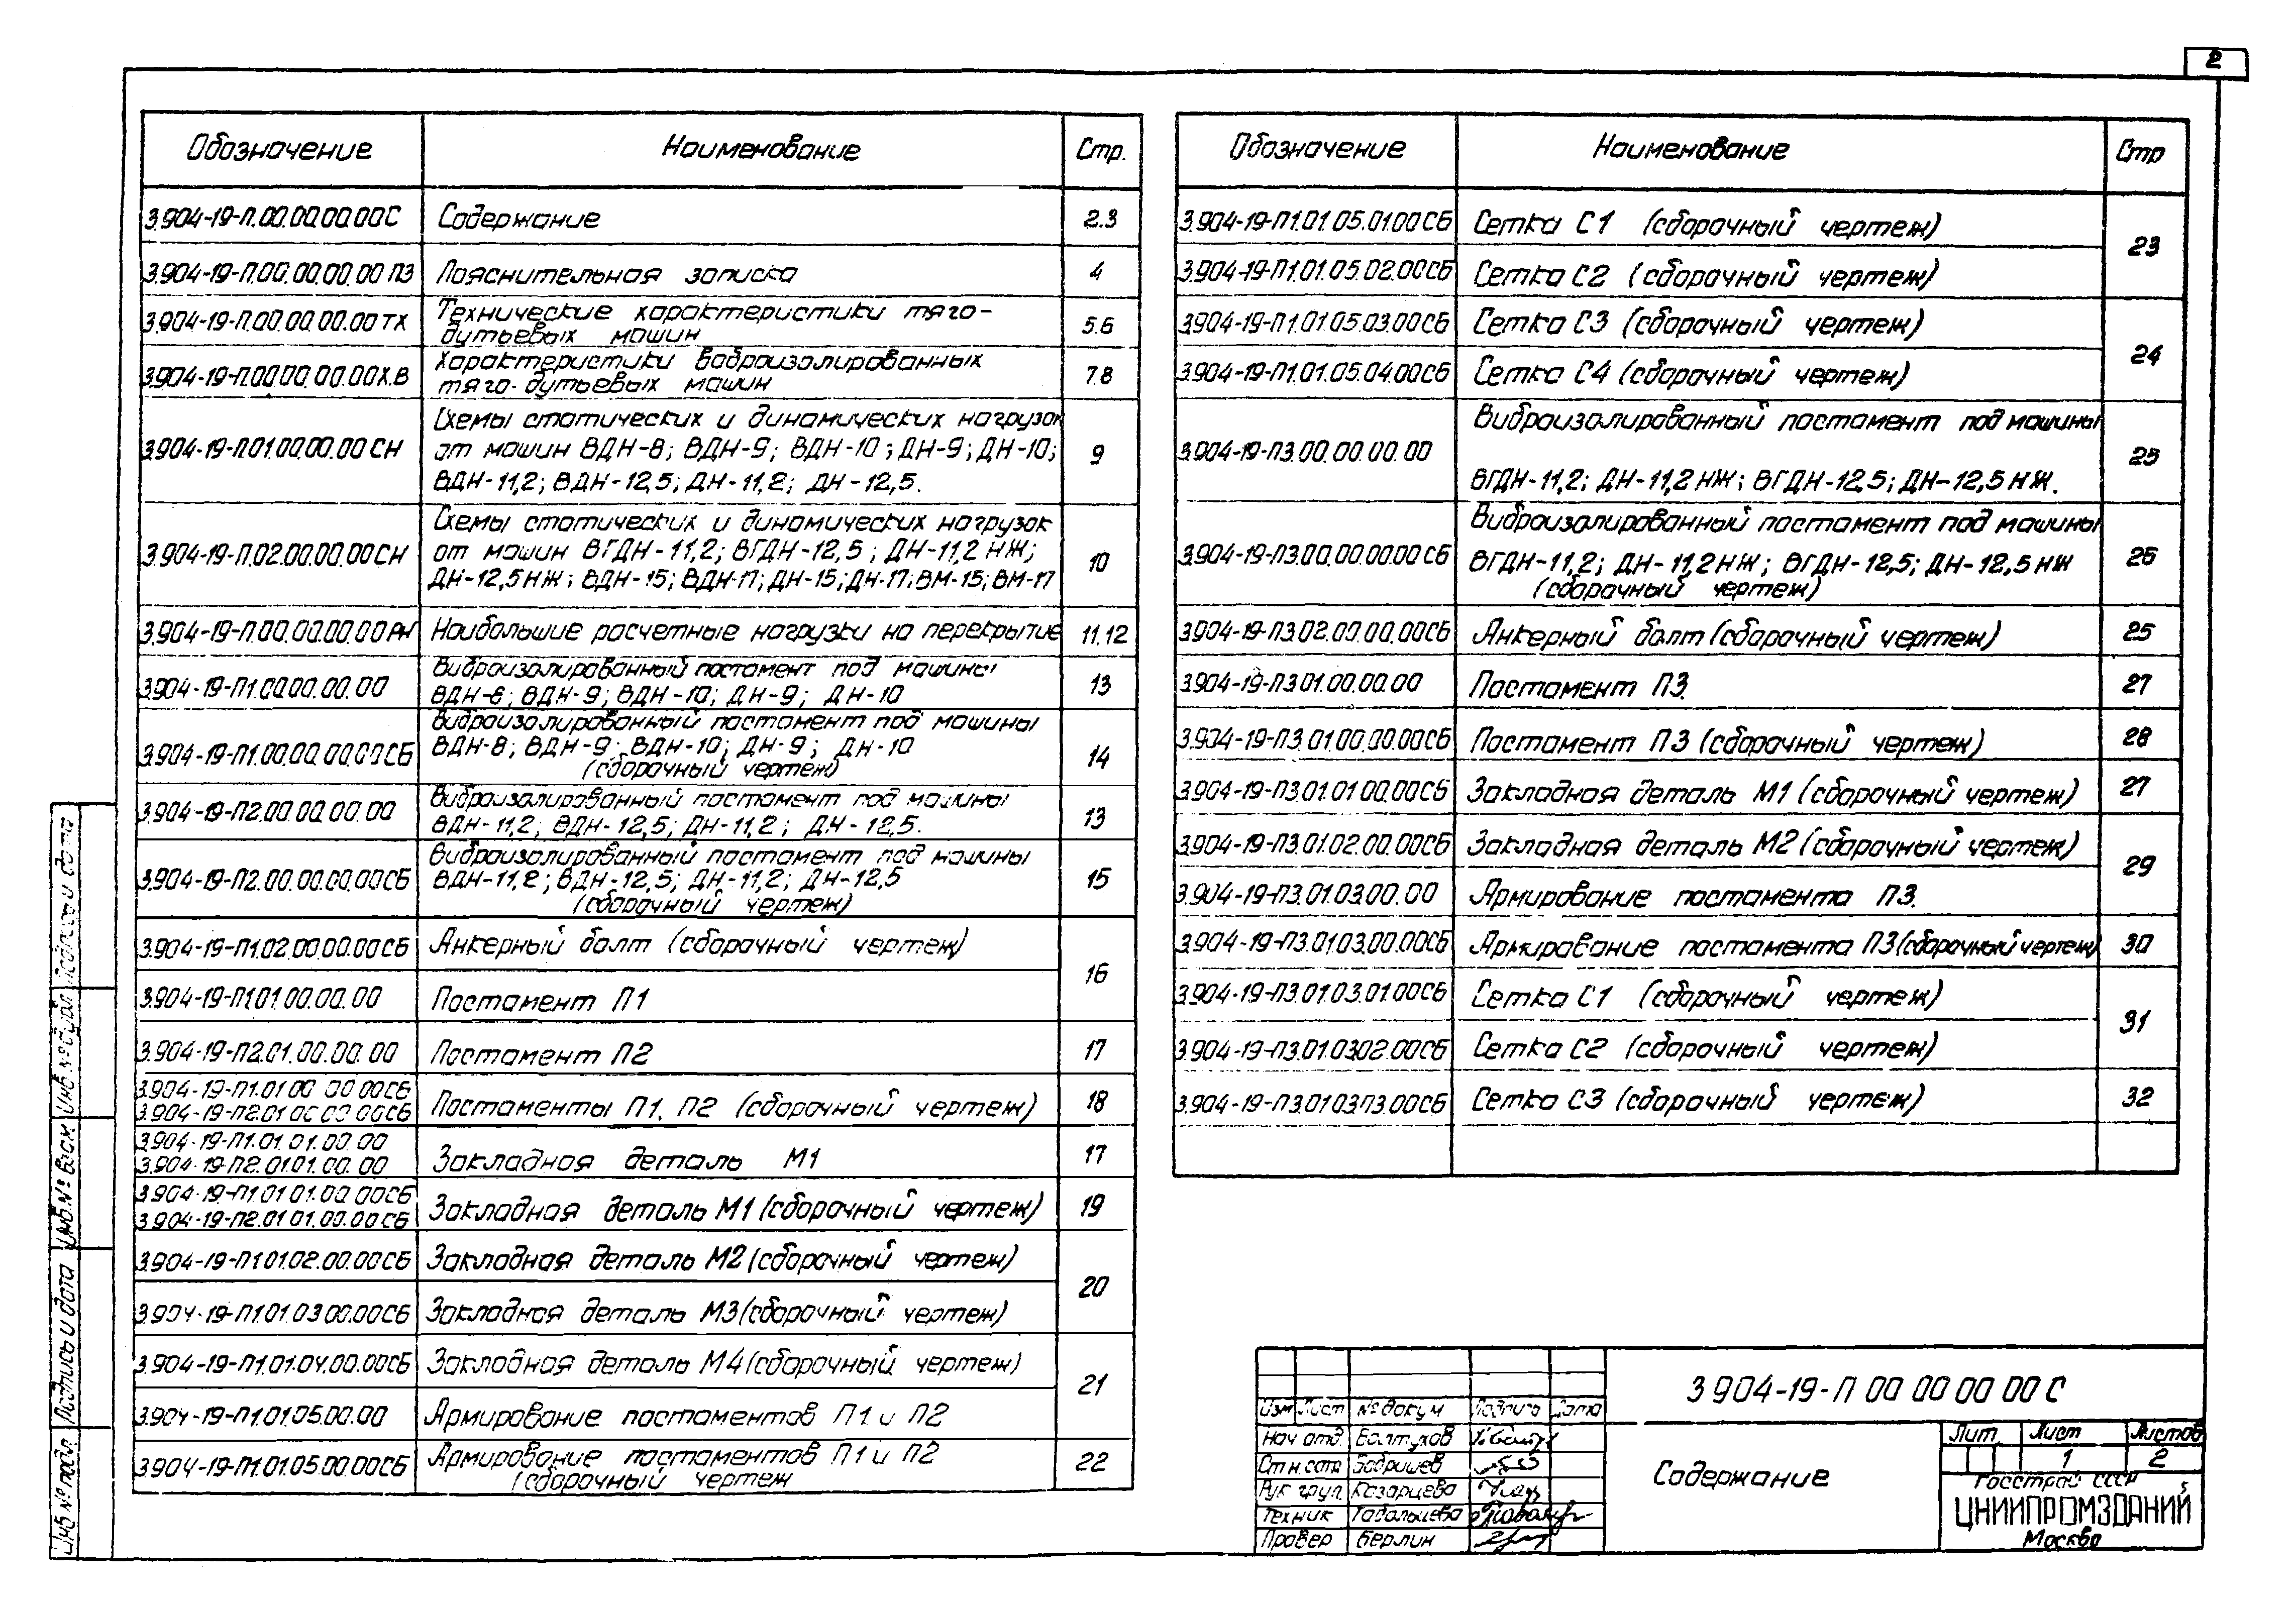 2
Обозначение
Наименование
Стр.
3.904-19-П.00.00.00.00С
Содержание
2.3
3.904-19-П.00.00.00.00 ПЗ
Пояснительная записка
4
3.904-19-П.00.00.00.00 ТХ
Технические характеристики тяго-
дутьевых машин
5.6
3.904-19-П.00.00.00.00Х.В
Характеристики виброизолированных
тяго-дутьевых машин
7.8
3.904-19-П.01.00.00.00 СН
Схемы статических и динамических нагрузок
от машин ВДН-8; ВДН-9; ВДН-10; ДН-9; ДН-10;
ВДН-11,2; ВДН-12,5; ДН-11,2; ДН-12,5.
9
3.904-19-П.02.00.00.00СН
Схемы статических и динамических нагрузок
от машин ВГДН-11,2; ВГДН-12,5; ДН-11,2 НЖ;
ДН-12,5НЖ; ВДН-15; ВДН-17; ДН-15; ДН-17; ВМ-15; ВМ-17
10
3.904-19-П.00.00.00.00РН
Наибольшие расчетные нагрузки на перекрытие
11.12
3.904-19-П1.00.00.00.00
Виброизолированный постамент под машины
ВДН-8; ВДН-9; ВДН-10; ДН-9; ДН-10
13
3.904-19-П1.00.00.00.00СБ
Виброизолированный постамент под машины
ВДН-8; ВДН-9; ВДН-10; ДН-9; ДН-10
(сборочный чертеж)
14
3.904-19-П2.00.00.00.00
Виброизолированный постамент под машины
ВДН-11,2; ВДН-12,5; ДН-11,2; ДН-12,5.
13
3.904-19-П2.00.00.00.00СБ
Виброизолированный постамент под машины
ВДН-11,2; ВДН-12,5; ДН-11,2; ДН-12,5
(сборочный чертеж)
15
3.904-19-П1.02.00.00.00СБ
Анкерный болт (сборочный чертеж)
16
3.904-19-П1.01.00.00.00
Постамент П1
3.904-19-П2.01.00.00.00
Постамент П2
17
3.904-19-П1.01.00.00.00СБ
3.904-19-П2.01.00.00.00СБ
Постаменты П1, П2 (сборочный чертеж)
18
3.904-19-П1.01.01.00.00
3.904-19-П2.01.01.00.00
Закладная деталь М1
17
3.904-19-П1.01.01.00.00СБ
3.904-19-П2.01.01.00.00СБ
Закладная деталь М1 (сборочный чертеж)
19
3.904-19-П1.01.02.00.00СБ
Закладная деталь М2 (сборочный чертеж)
20
3.904-19-П1.01.03.00.00СБ
Закладная деталь М3 (сборочный чертеж)
3.904-19-П1.01.04.00.00СБ
Закладная деталь М4 (сборочный чертеж)
21
3.904-19-П1.01.05.00.00
Армирование постаментов П1 и П2
3.904-19-П1.01.05.00.00СБ
Армирование постаментов П1 и П2
(сборочный чертеж
22
Обозначение
Наименование
Стр
3.904-19-П1.01.05.01.00СБ
Сетка С1 (сборочный чертеж)
23
3.904-19-П1.01.05.02.00СБ
Сетка С2 (сборочный чертеж)
3.904-19-П1.01.05.03.00СБ
Сетка С3 (сборочный чертеж)
24
3.904-19-П1.01.05.04.00СБ
Сетка С4 (сборочный чертеж)
3.904-19-П3.00.00.00.00
Виброизолированный постамент под машины
ВГДН-11,2; ДН-11,2 НЖ; ВГДН-12,5; ДН-12,5 НЖ.
25
3.904-19-П3.00.00.00.00СБ
Виброизолированный постамент под машины
ВГДН-11,2; ДН-11,2НЖ; ВГДН-12,5; ДН-12,5 НЖ
(сборочный чертеж)
26
3.904-19-П3.02.00.00.00СБ
Анкерный болт (сборочный чертеж)
25
3.904-19-П3.01.00.00.00
Постамент П3.
27
3.904-19-П3.01.00.00.00СБ
Постамент П3 (сборочный чертеж)
28
3.904-19-П3.01.01.00.00СБ
Закладная деталь М1 (сборочный чертеж)
27
3.904-19-П3.01.02.00.00СБ
Закладная деталь М2 (сборочный чертеж)
29
3.904-19-П3.01.03.00.00
Армирование постамента П3.
3.904-19-П3.01.03.00.00СБ
Армирование постамента П3 (сборочный чертеж)
30
3.904-19-П3.01.03.01.00СБ
Сетка С1 (сборочный чертеж)
31
3.904-19-П3.01.03.02.00СБ
Сетка С2 (сборочный чертеж)
3.904-19-П3.01.03.03.00СБ
Сетка С3 (сборочный чертеж)
32
3 904-19-П 00 00 00 00 С
Изм Лист № докум Подпись Дата
Нач отд. Балтухов
Ст н. сотр Бобришев
Рук груп. Казарцева
Техник
Провер Берлин
Содержание
Лит. Лист Листов
1 2
Госстрой СССР
ЦНИИПРОМЗДАНИЙ
Москва
Инв № подл. Подпись и дата Взам. инв. № Инв. № дубл. Подпись и дата